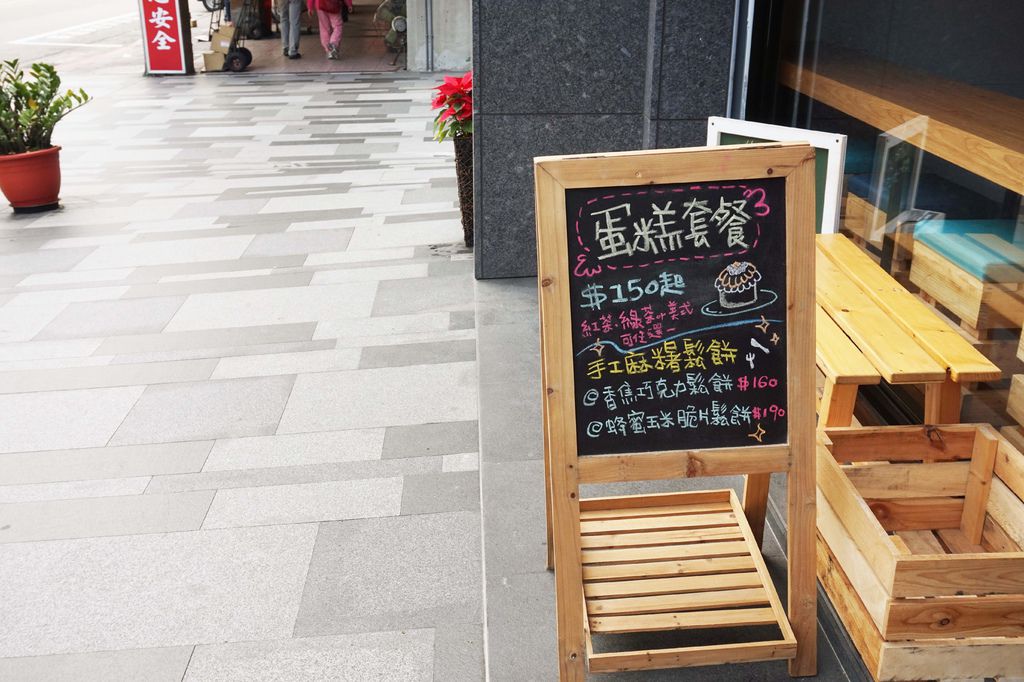 安全
蛋糕套餐
$150起
紅茶、綠茶or美式
可任選一
手工麻糬鬆餅
@香焦巧克力鬆餅$160
@蜂蜜玉米脆片鬆餅$190